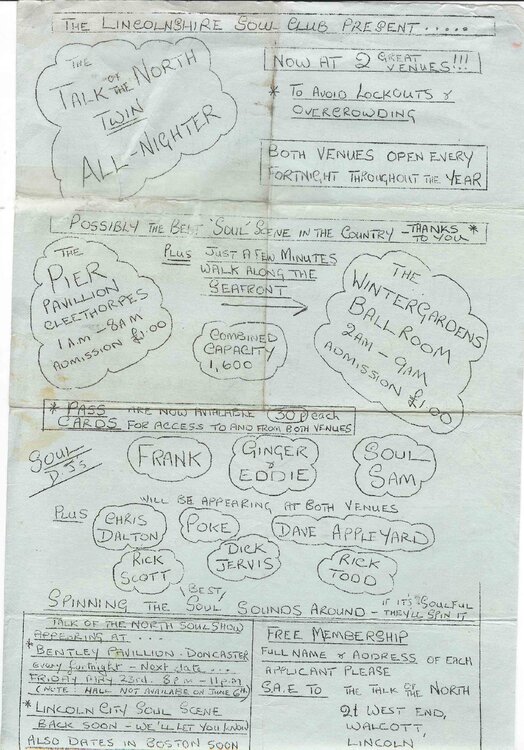 THE LINCOLNSHIRE SOUL CLUB PRESENT.....
THE
TALK OF THE NORTH
TWIN
ALL-NIGHTER
NOW AT 2 GREAT VENUES!!!
* TO AVOID LOCKOUTS &
OVERCROWDING
BOTH VENUES OPEN EVERY
FORTNIGHT THROUGHOUT THE YEAR
POSSIBLY THE BEST 'SOUL' SCENE IN THE COUNTRY - THANKS TO YOU *
THE
PIER
PAVILLION
CLEETHORPES
1AM - 8AM
ADMISSION £1.00
PLUS JUST A FEW MINUTES
WALK ALONG THE
SEAFRONT
COMBINED
CAPACITY
1,600
THE
WINTERGARDENS
BALLROOM
2AM - 9AM
ADMISSION £1.00
* PASS ARE NOW AVAILABLE (30p) each
CARDS FOR ACCESS TO AND FROM BOTH VENUES
SOUL
D.J's
FRANK
GINGER
& EDDIE
SOUL
SAM
WILL BE APPEARING AT BOTH VENUES
PLUS
CHRIS
DALTON
POKE
DAVE APPLEYARD
RICK
SCOTT
DICK
JERVIS
RICK
TODD
SPINNING THE BEST SOUL SOUNDS AROUND - IF IT'S SOULFUL THEY'LL SPIN IT
TALK OF THE NORTH SOUL SHOW
APPEARING AT....
* BENTLEY PAVILLION. DONCASTER
every fortnight - Next date...
FRIDAY MAY 23rd. 8p.m - 11p.m
(NOTE: HALL NOT AVAILABLE ON JUNE 6th)
* LINCOLN CITY SOUL SCENE
BACK SOON - WE'LL LET YOU KNOW
ALSO DATES IN BOSTON SOON
FREE MEMBERSHIP
FULL NAME & ADDRESS OF EACH
APPLICANT PLEASE
S.A.E TO THE TALK OF THE NORTH
21 WEST END,
WALCOTT,
LINCOLN